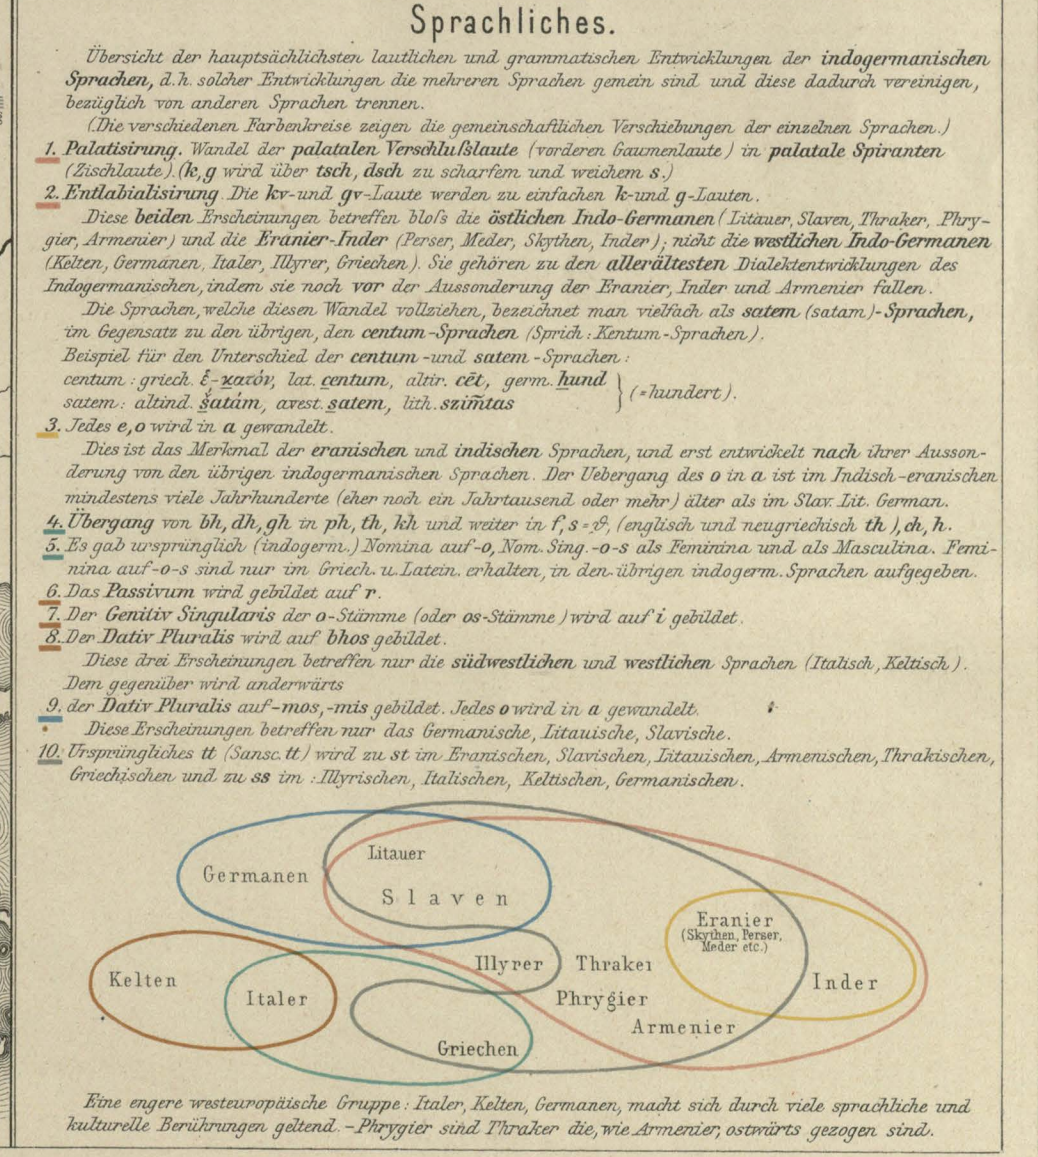 Sprachliches.
Übersicht der hauptsächlichsten lautlichen und grammatischen Entwicklungen der indogermanischen
Sprachen, d.h. solcher Entwicklungen die mehreren Sprachen gemein sind und diese dadurch vereinigen,
bezüglich von anderen Sprachen trennen.
(Die verschiedenen Farbenkreise zeigen die gemeinschaftlichen Verschiebungen der einzelnen Sprachen.)
1. Palatisirung. Wandel der palatalen Verschlufslaute (vorderen Gaumenlaute) in palatale Spiranten
(Zischlaute). (k, g wird über tsch, dsch zu scharfem und weichem s.)
2. Entlabialisirung. Die kv- und gv-Laute werden zu einfachen k- und g-Lauten.
Diese beiden Erscheinungen betreffen blofs die östlichen Indo-Germanen (Litauer, Slaven, Thraker, Phry-
gier, Armenier) und die Eranier-Inder (Perser, Meder, Skythen, Inder); nicht die westlichen Indo-Germanen
(Kelten, Germanen, Italer, Illyrer, Griechen). Sie gehören zu den allerältesten Dialektentwicklungen des
Indogermanischen, indem sie noch vor der Aussonderung der Eranier, Inder und Armenier fallen.
Die Sprachen, welche diesen Wandel vollziehen, bezeichnet man vielfach als satem (satam)-Sprachen,
im Gegensatz zu den übrigen, den centum-Sprachen (Sprich: Kentum-Sprachen).
Beispiel für den Unterschied der centum- und satem-Sprachen:
centum: griech. ἑ-κατόν, lat. centum, altir. cēt, germ. hund
satem: altind. šatám, avest. satem, lith. szim̃tas } (= hundert).
3. Jedes e, o wird in a gewandelt.
Dies ist das Merkmal der eranischen und indischen Sprachen, und erst entwickelt nach ihrer Ausson-
derung von den übrigen indogermanischen Sprachen. Der Uebergang des o in a ist im Indisch-eranischen
mindestens viele Jahrhunderte (eher noch ein Jahrtausend oder mehr) älter als im Slav. Lit. German.
4. Übergang von bh, dh, gh in ph, th, kh und weiter in f, s = ϑ, (englisch und neugriechisch th), ch, h.
5. Es gab ursprünglich (indogerm.) Nomina auf -o, Nom. Sing. -o-s als Feminina und als Masculina. Femi-
nina auf -o-s sind nur im Griech. u. Latein. erhalten, in den übrigen indogerm. Sprachen aufgegeben.
6. Das Passivum wird gebildet auf r.
7. Der Genitiv Singularis der o-Stämme (oder os-Stämme) wird auf i gebildet.
8. Der Dativ Pluralis wird auf bhos gebildet.
Diese drei Erscheinungen betreffen nur die südwestlichen und westlichen Sprachen (Italisch, Keltisch).
Dem gegenüber wird anderwärts
9. der Dativ Pluralis auf -mos, -mis gebildet. Jedes o wird in a gewandelt.
Diese Erscheinungen betreffen nur das Germanische, Litauische, Slavische.
10. Ursprüngliches tt (Sansc. tt) wird zu st im Eranischen, Slavischen, Litauischen, Armenischen, Thrakischen,
Griechischen und zu ss im: Illyrischen, Italischen, Keltischen, Germanischen.
Litauer
Germanen
Slaven
Eranier
(Skythen, Perser,
Meder etc.)
Illyrer
Thraker
Kelten
Inder
Italer
Phrygier
Armenier
Griechen
Eine engere westeuropäische Gruppe: Italer, Kelten, Germanen, macht sich durch viele sprachliche und
kulturelle Berührungen geltend. - Phrygier sind Thraker die, wie Armenier, ostwärts gezogen sind.